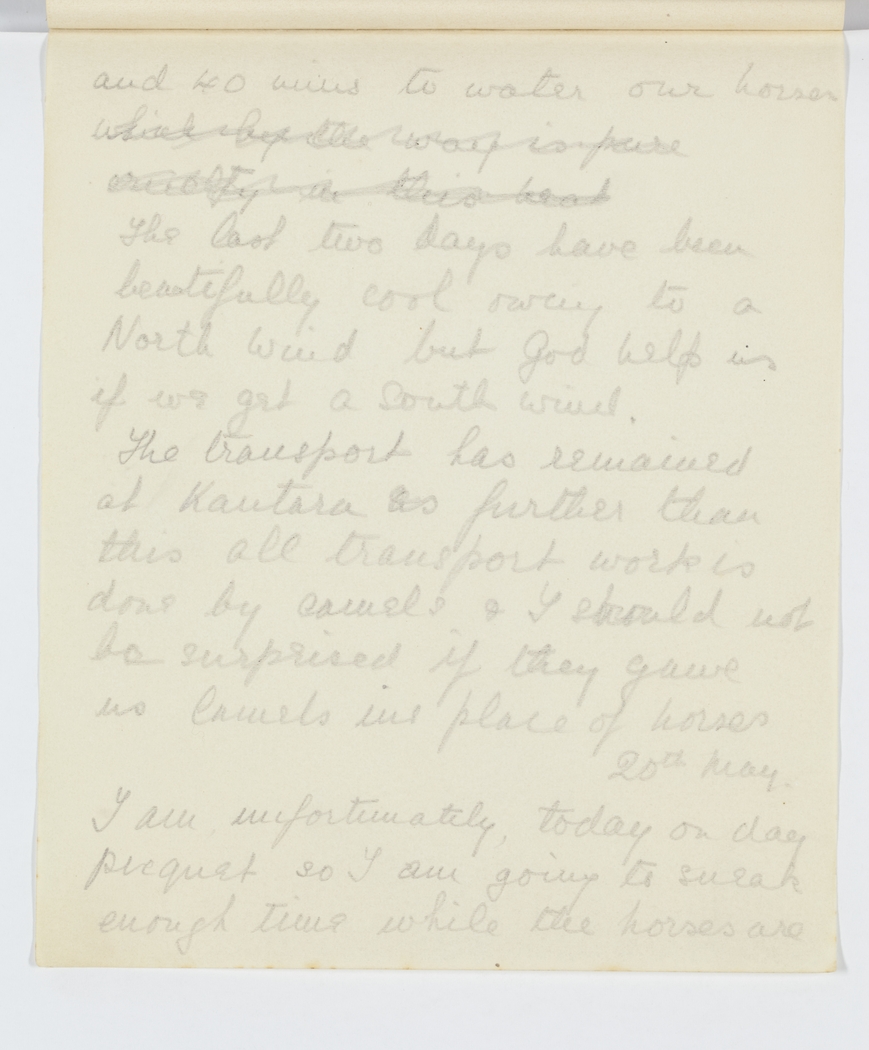 and 40 mins to water our horses
which by the way is pure
cruelty in this heat
The last two days have been
beautifully cool owing to a
North wind but God help us
if we get a South wind.
The transport has remained
at Kantara as further than
this all transport work is
done by camels & I should not
be surprised if they gave
us Camels ins place of horses
20th May.
I am, unfortunately, today on day
picquet so I am going to sneak
enough time while the horses are